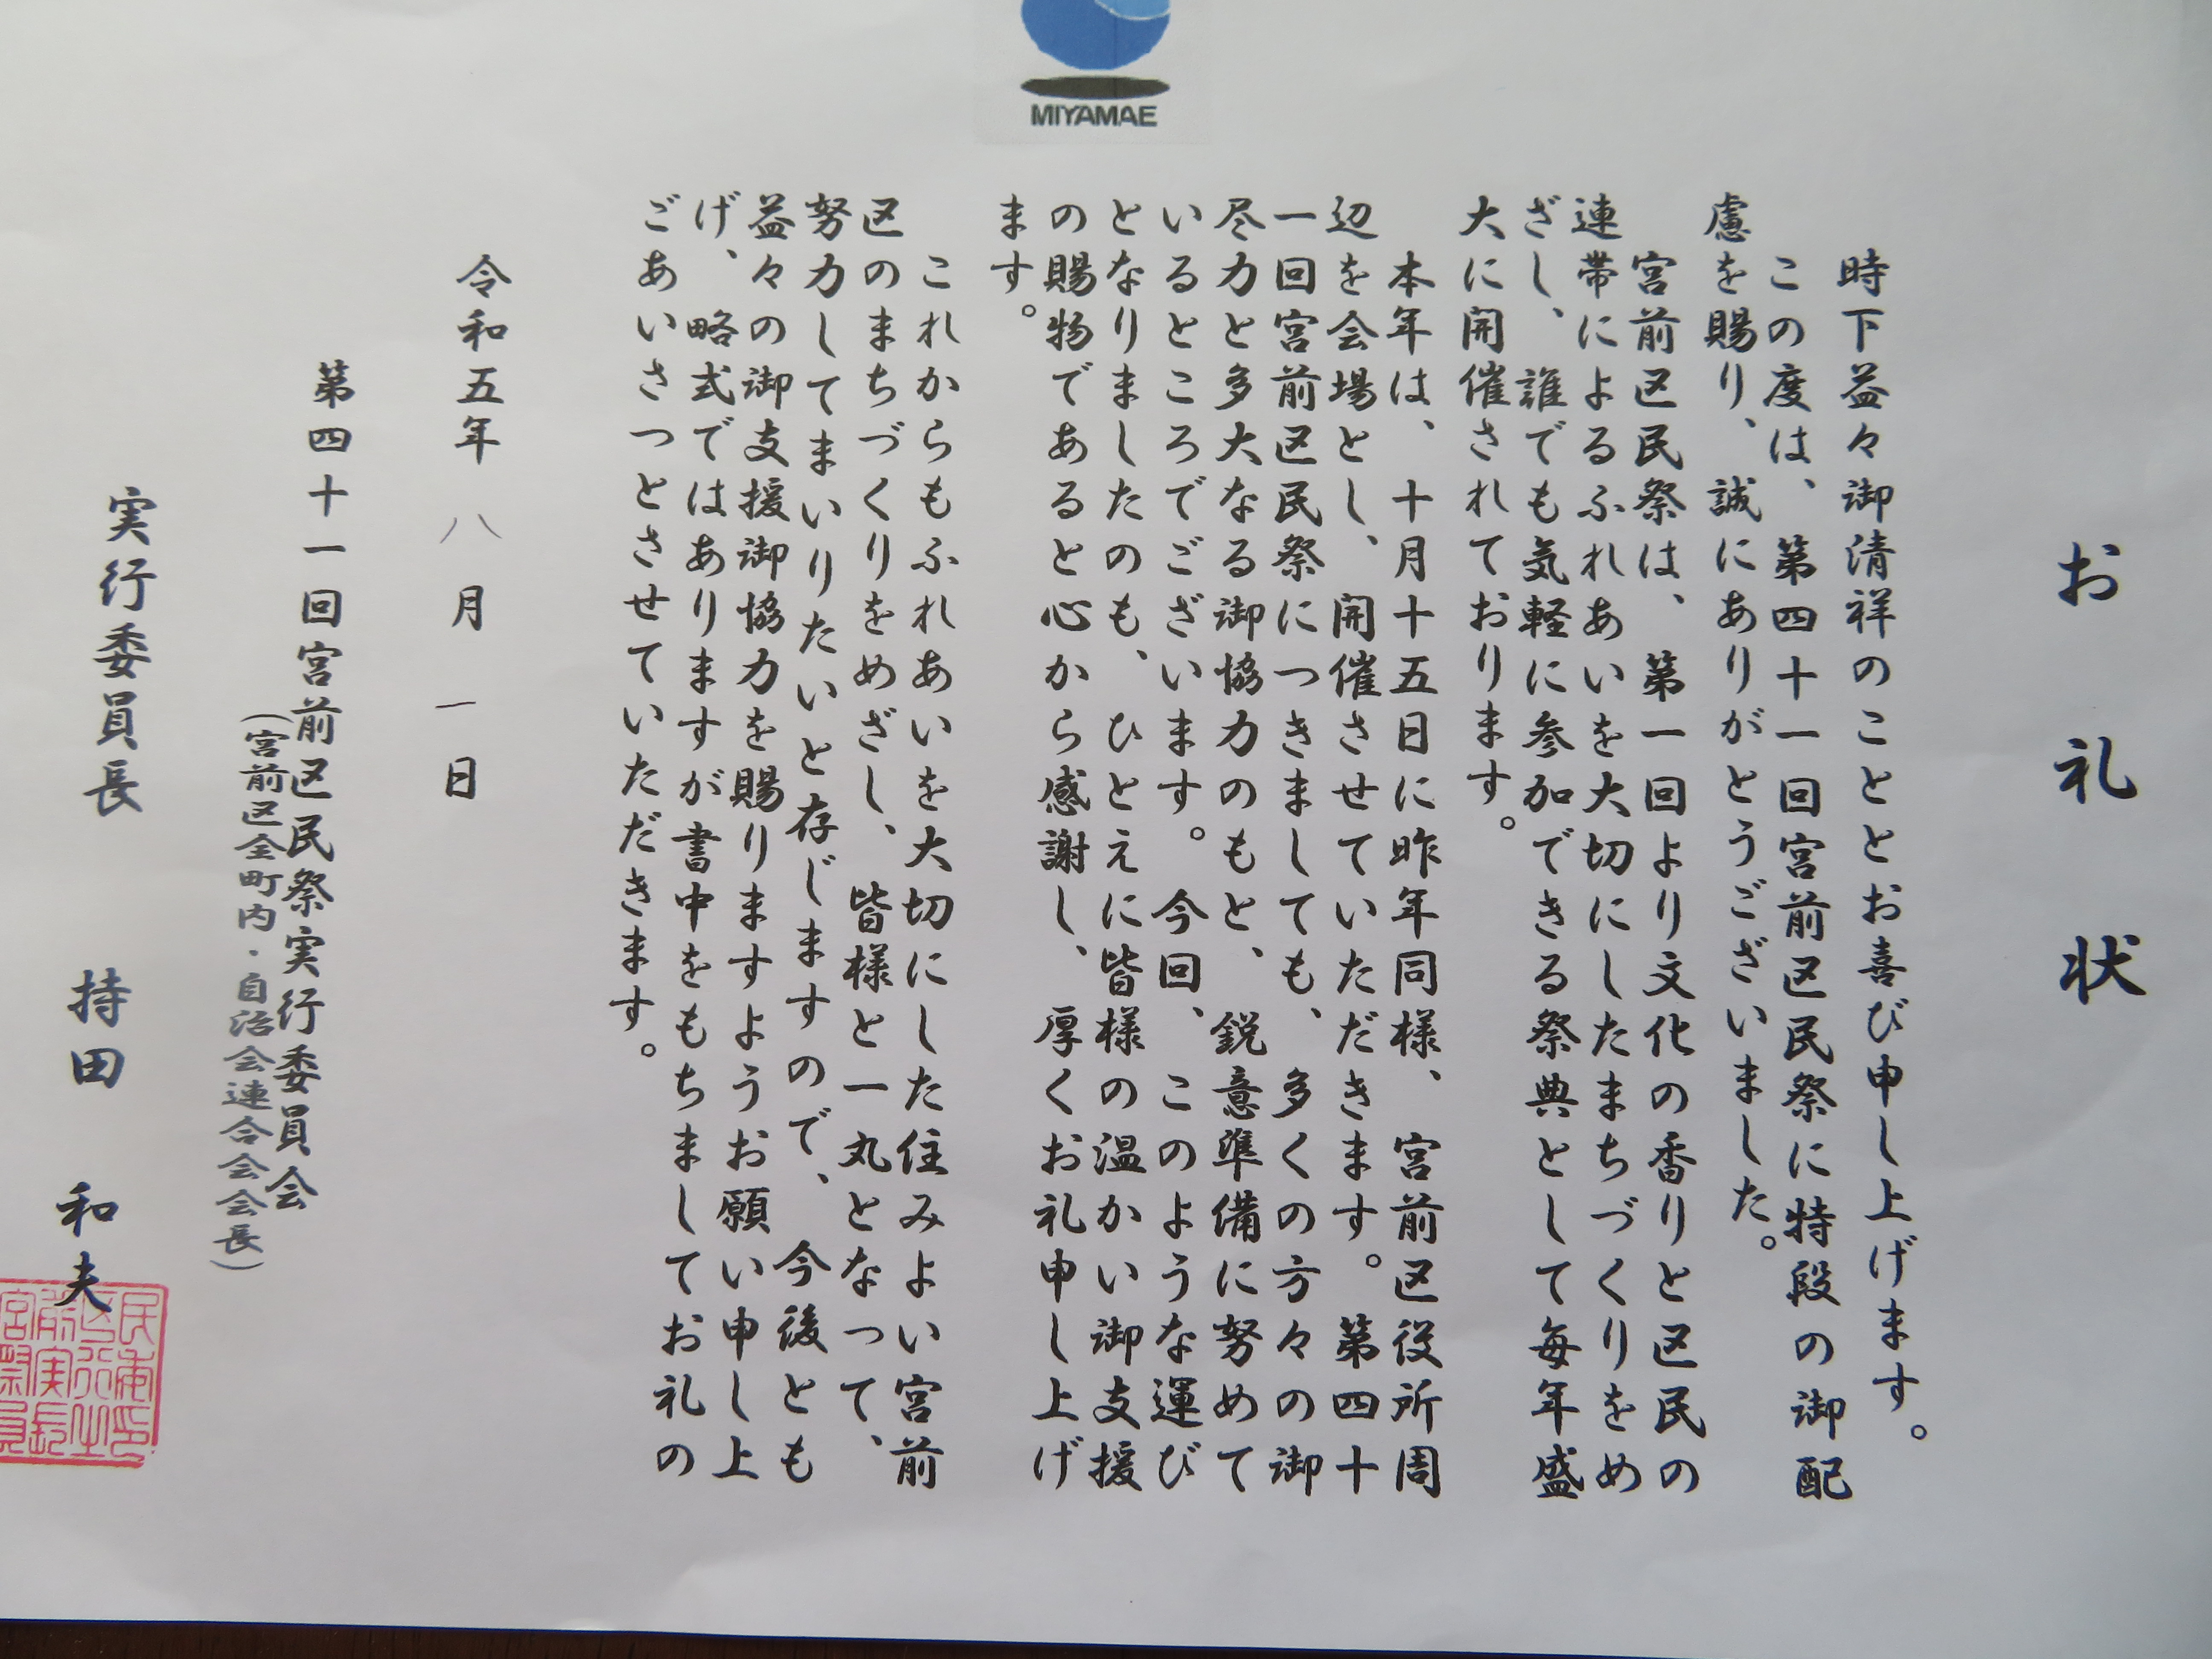 MIYAMAE
お礼状
時下益々御清祥のこととお喜び申し上げます。
この度は、第四十一回宮前区民祭に特段の御配
慮を賜り、誠にありがとうございました。
宮前区民祭は、第一回より文化の香りと区民の
連帯によるふれあいを大切にしたまちづくりをめ
ざし、誰でも気軽に参加できる祭典として毎年盛
大に開催されております。
本年は、十月十五日に昨年同様、宮前区役所周
辺を会場とし、開催させていただきます。第四十
一回宮前区民祭につきましても、多くの方々の御
尽力と多大なる御協力のもと、鋭意準備に努めて
いるところでございます。今回、このような運び
となりましたのも、ひとえに皆様の温かい御支援
の賜物であると心から感謝し、厚くお礼申し上げ
ます。
これからもふれあいを大切にした住みよい宮前
区のまちづくりをめざし、皆様と一丸となって、
努力してまいりたいと存じますので、今後とも
益々の御支援御協力を賜りますようお願い申し上
げ、略式ではありますが書中をもちましてお礼の
ごあいさつとさせていただきます。
令和五年八月一日
第四十一回宮前区民祭実行委員会
（宮前区全町内・自治会連合会会長）
実行委員長 持田 和夫